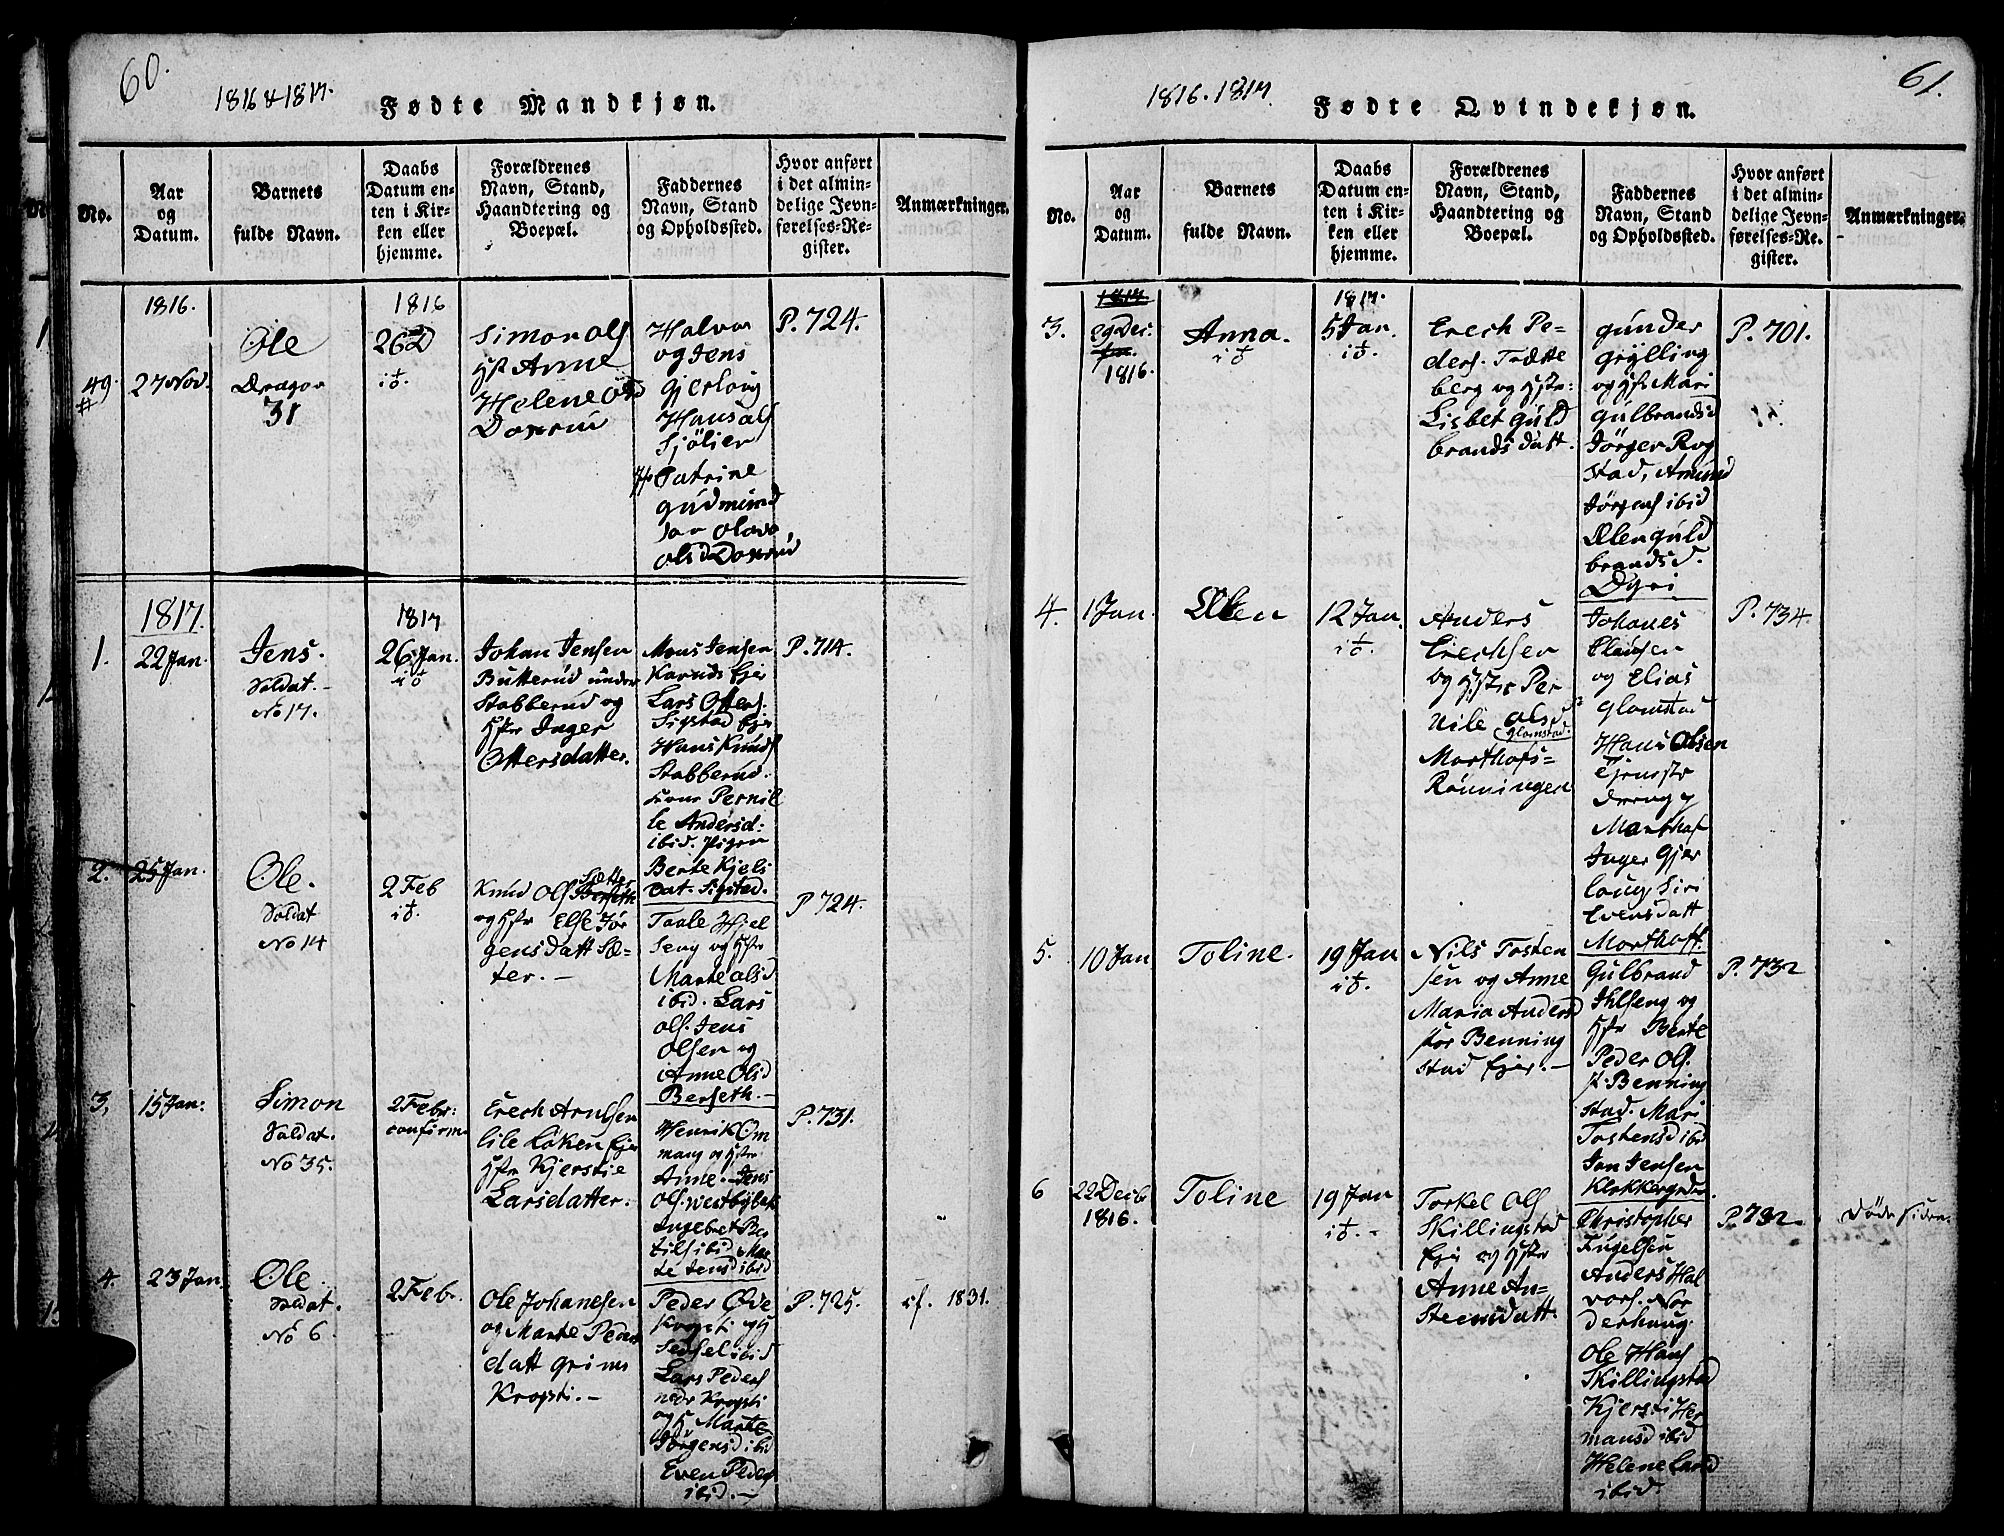 60.
1816 & 1817.
Fødte Mandkjøn.
No.
Aar
og
Datum.
Barnets
fulde Navn.
Daabs
Datum en-
ten i Kir-
ken eller
hjemme.
Forældrenes
Navn, Stand,
Haandtering og
Boepæl.
Faddernes
Navn, Stand
og Opholdssted.
Hvor anført
i det almin-
delige Jevn-
førelses-Re-
gister.
Anmærkninger.
49.
1816.
27 Nov.
Ole
Dragon
31
1816
26 D
Simon Ols
Anne
Helene
Halvor
og Jens
Gjerloug
Hans Ols
Sjølier
Catrine
Gudmund
Olava
P. 724.
1817.
1.
22 Jan.
Jens.
Soldat.
No 17.
1817
26 Jan.
Johan Jensen
Butterud under
Stabberud og
Inger
Ottersdatter.
Mons Jensen
Lars Otters.
Sigstad Ejer
Hans Knuds
Stabberud.
Pernil
le Andersd:
ibid. Pigen
Berte Kjels
Dat. Sigstad.
P. 714.
2.
25 Jan.
Ole.
Soldat
No 14
2 Feb
Knud Ols Sætter
og Else Jør
gensdatt Sæ-
ter.
Taale Hjel
seng og
Marte Olsd
ibid. Lars
Ols. Jens
Olsen og
Anne Olsd
Berseth.
P 724.
3.
15 Jan:
Simon
Soldat.
No 35.
2 Febr:
confirm.
Erech Arnesen
lile Løken Ejer
Kjerstie
Larsdatter.
Henrik Om
mang og
Anne. Jens
Ols.
Ingebret Ber
tils ibid Mar
te Jensd ibid
P. 731.
4.
23 Jan
Ole.
Soldat.
No 6.
2 Febr.
Ole Johanesen
og Marte Peders
datt Grims
Kropsti.
Peder Øve
Kropsti og
Sedsel ibid
Lars Peders
nedr Kropsti
og Marte
Jørgensd ibid
Even Peders
ibid.
P. 725.
cf. 1831.
61.
1816. 1817.
Fødte Qvindekjøn.
No.
Aar
og
Datum.
Barnets
fulde Navn.
Daabs
Datum en-
ten i Kir-
ken eller
hjemme.
Forældrenes
Navn, Stand,
Haandtering og
Boepæl.
Faddernes
Navn, Stand
og Opholdssted.
Hvor anført
i det almin-
delige Jevn-
førelses-Re-
gister.
Anmærkninger.
3.
1817
29 Dec.
1816.
Anna.
1817.
5 Jan.
Erech Pe-
ders. Trætte
berg og
Lisbet Guld
brandsdatt.
Gunder
Grylling
og Mari
Gulbrandsd
Jørgen Rog
stad, Amund
Jørgens ibid
Ellen Guld
brandsd.
Dyri
P. 701.
4.
1 Jan.
Ellen
12 Jan.
Anders
Erechsen
og Per
nile Olsd
Glomstad.
Morthofs-
Rønningen
Johanes
Clausen
og Elias
Glomstad
Hans Olsen
Tjeneste
dreng
Morthof
Inger Gjer
loug, Siri
Evensdatt
Morthoff.
P. 734.
5.
10 Jan
Toline.
19 Jan
Nils Tosten
sen og Anne
Maria Andersd
stor Benning
stad Ejer.
Gulbrand
Ihlseng og
Berte
Peder Ols.
Benning
stad. Mari
Tostensd ibid
Jan Jensen
P. 732
6
22 Decb
1816.
Toline
19 Jan
Torkel Ols
Skillingstad
Ejer og
Anne An-
steensdatt.
Christopher
Fugelsen
Anders Hal
vors. Nor
derhaug.
Ole Hans
Skillingstad
Kjersti Her
mansd ibid
Helene Larsd
ibid.
P. 732.